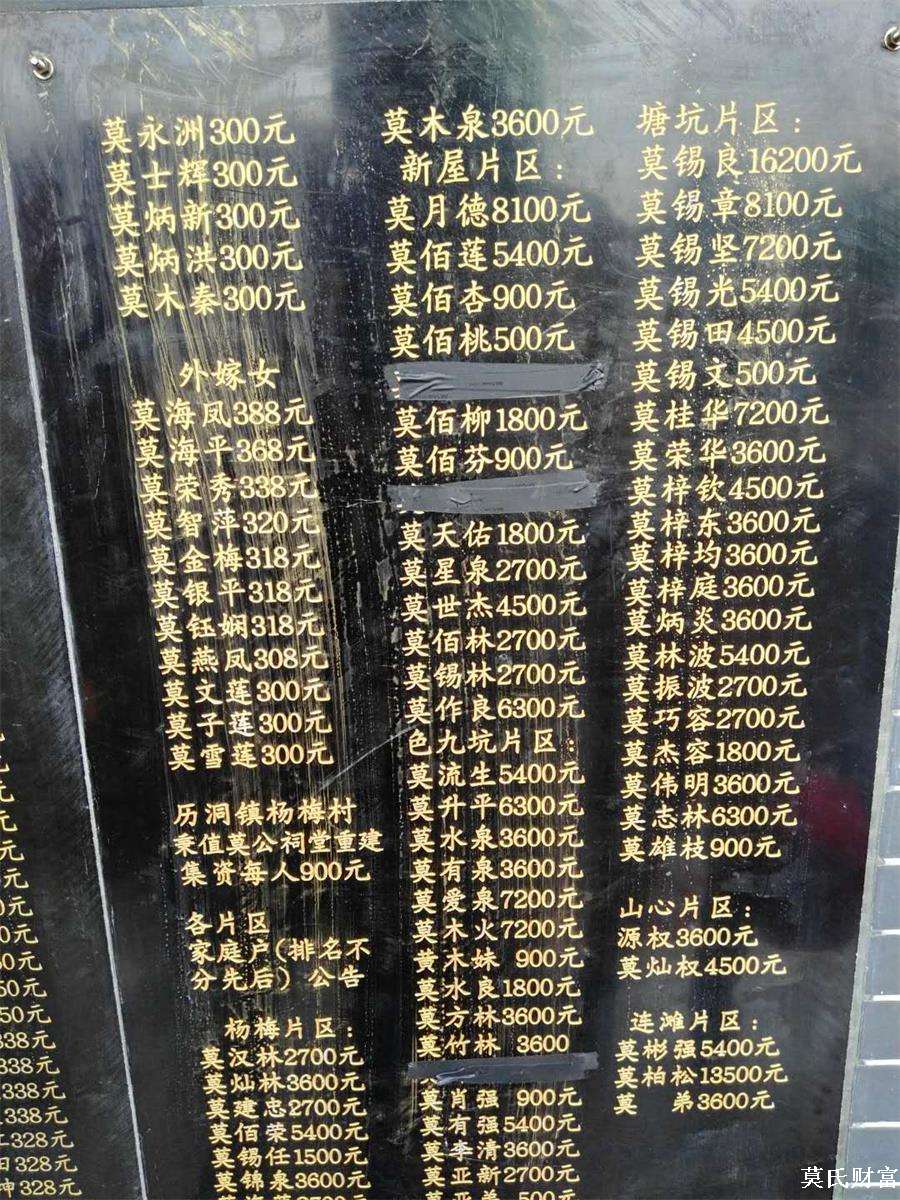 莫永洲300元
莫士辉300元
莫炳新300元
莫炳洪300元
莫木秦300元
外嫁女
莫海凤388元
莫海平368元
莫荣秀338元
莫智萍320元
莫金梅318元
莫银平318元
莫钰娴318元
莫燕凤308元
莫文莲300元
莫子莲300元
莫雪莲300元
历洞镇杨梅村
秉值莫公祠堂重建
集资每人900元
各片区
家庭户(排名不
分先后)公告
杨梅片区:
莫汉林2700元
莫灿林3600元
莫建忠2700元
莫佰荣5400元
莫锡任1500元
莫锦泉3600元
莫木泉3600元
新屋片区:
莫月德8100元
莫佰莲5400元
莫佰杏900元
莫佰桃500元
莫佰柳1800元
莫佰芬900元
莫天佑1800元
莫星泉2700元
莫世杰4500元
莫佰林2700元
莫锡林2700元
莫作良6300元
色九坑片区:
莫流生5400元
莫升平6300元
莫水泉3600元
莫有泉3600元
莫爱泉7200元
莫木火7200元
黄木妹 900元
莫水良1800元
莫方林3600元
莫竹林 3600
莫肖强 900元
莫有强5400元
莫李清3600元
莫亚新2700元
莫亚弟 500元
塘坑片区:
莫锡良16200元
莫锡章8100元
莫锡坚7200元
莫锡光5400元
莫锡田4500元
莫锡文500元
莫桂华7200元
莫荣华3600元
莫梓钦4500元
莫梓东3600元
莫梓均3600元
莫梓庭3600元
莫炳炎3600元
莫林波5400元
莫振波2700元
莫巧容2700元
莫杰容1800元
莫伟明3600元
莫志林6300元
莫雄枝900元
山心片区:
源权3600元
莫灿权4500元
连滩片区:
莫彬强5400元
莫柏松13500元
莫 弟3600元
338元
338元
338元
328元
328元
328元
莫氏财富